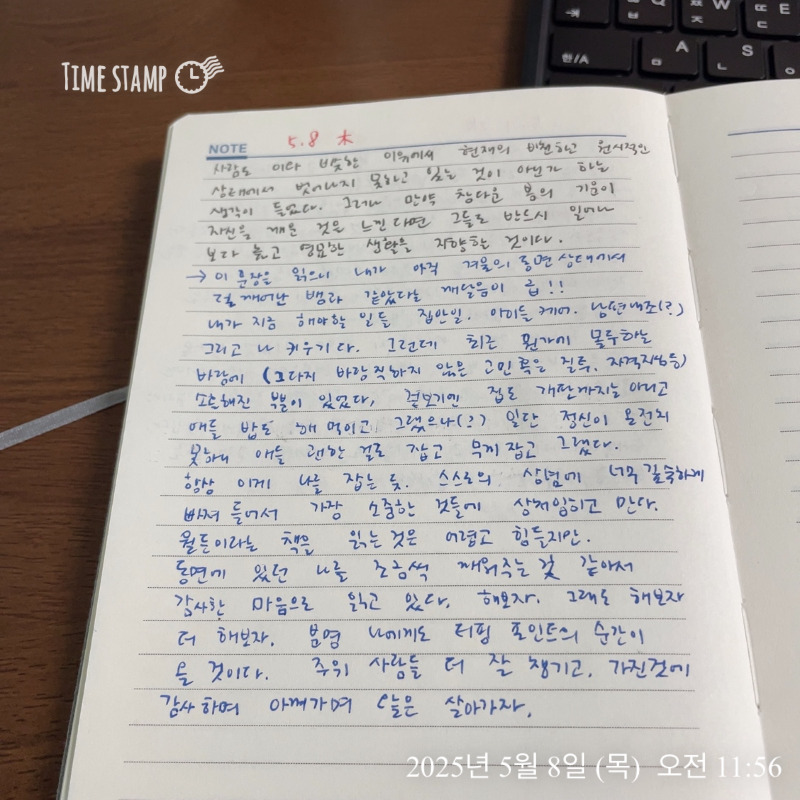 TIME STAMP
ㅌ E
ㅈ
ㅊ
한/A
A
ㅁ
S
ㄴ
NOTE 5.8 木
사람도 이와 비슷한 이유에서 현재의 비천하고 원시적인
상태에서 벗어나지 못하고 있는 것이 아닌가 하는
생각이 들었다. 그러나 만약 참다운 봄의 기운이
자신을 깨운 것을 느낀다면 그들은 반드시 일어나
보다 높고 영묘한 생활을 지향하는 것이다.
→ 이 문장을 읽으니 내가 아직 겨울의 동면 상태에서
덜 깨어난 뱀과 같았다는 깨달음이 듬!!
내가 지금 해야할 일들 집안일. 아이들 케어. 남편 내조(?)
그리고 나 키우기다. 그런데 최근 뭔가에 몰두하는
바람에 (그다지 바람직하지 않은 고민 혹은 질투. 자격지심 등)
소손해진 부분이 있었다. 겉보기엔 집도 개판까지는 아니고
애들 밥도 해 먹이고 그랬으나(?) 일단 정신이 온전치
못하니 애들 괜한 걸로 잡고 무게 잡고 그랬다.
항상 이게 나를 잡는 듯. 스스로의 상념에 너무 깊숙하게
빠져 들어서 가장 소중한 것들에 상처입히고 만다.
월든이라는 책을 읽는 것은 어렵고 힘들지만.
동면에 있던 나를 조금씩 깨워주는 것 같아서
감사한 마음으로 읽고 있다. 해보자. 그래도 해보자
더 해보자. 분명 나에게도 터핑 포인트의 순간이
올 것이다. 주위 사람들 더 잘 챙기고. 가진것에
감사하며 아껴가며 오늘은 살아가자.
2025년 5월 8일 (목) 오전 11:56